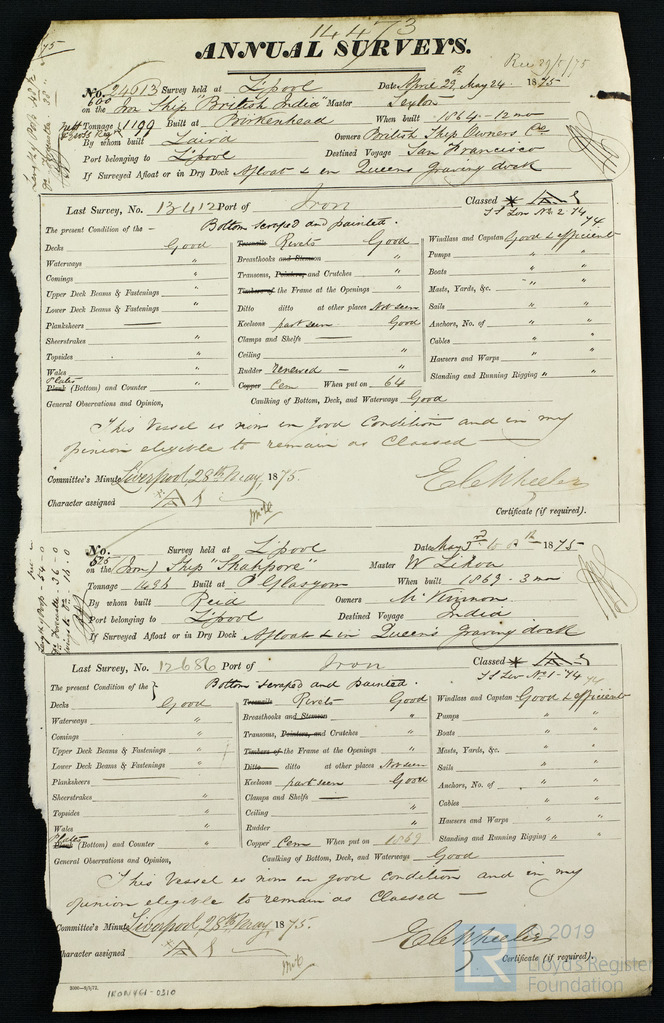 14473
ANNUAL SURVEYS.
Rec 29/5/75
No. 24613 Survey held at L'pool Date April 29th May 24. 1875
on the Iron Ship "British India" Master Sexton
Tonnage 1199 Built at Birkenhead When built 1864-12 mo
By whom built Laird Owners British Ship Owners Co
Port belonging to L'pool Destined Voyage San Francisco
If Surveyed Afloat or in Dry Dock Afloat & in Queens graving dock
Last Survey, No. 13412 Port of Iron Classed * A
SS Liv No. 2 74
The present Condition of the - Bottom scraped and painted.
Decks Good Treenails Rivets Good Windlass and Capstan Good & efficient
Waterways " Breasthooks and Stemson " Pumps " "
Comings " Transoms, Pointers, and Crutches " Boats " "
Upper Deck Beams & Fastenings " Timbers of the Frame at the Openings " Masts, Yards, &c. " "
Lower Deck Beams & Fastenings " Ditto ditto at other places Not seen Sails " "
Planksheers — Keelsons part seen Good Anchors, No. of " "
Sheerstrakes " Clamps and Shelfs — Cables " "
Topsides " Ceiling " Hawsers and Warps " "
Wales " Rudder renewed - " Standing and Running Rigging " "
Plates
Plank (Bottom) and Counter " Copper Cem When put on 64
General Observations and Opinion, Caulking of Bottom, Deck, and Waterways Good
This Vessel is now in good Condition and in my
opinion eligible to remain as Classed —
Committee's Minute Liverpool, 28th May, 1875.
E C Wheeler
Character assigned A
Certificate (if required).
No. Survey held at L'pool Date May 3rd to 1875
on the (Iron) Ship "Shahpore" Master W
Tonnage Built at P Glasgow When built 1869 - 3 mo
By whom built Reid Owners McKinnon
Port belonging to L'pool Destined Voyage India
If Surveyed Afloat or in Dry Dock Afloat & in Queens graving dock
Last Survey, No. 12686 Port of Iron Classed * A
SS Liv No. 1-74
The present Condition of the Bottom scraped and painted.
Decks Good Treenails Rivets Good Windlass and Capstan Good & efficient
Waterways " Breasthooks and Stemson " Pumps " "
Comings " Transoms, Pointers, and Crutches " Boats " "
Upper Deck Beams & Fastenings " Timbers of the Frame at the Openings " Masts, Yards, &c. " "
Lower Deck Beams & Fastenings " Ditto ditto at other places Not seen Sails " "
Planksheers — Keelsons part seen Good Anchors, No. of " "
Sheerstrakes " Clamps and Shelfs — Cables " "
Topsides " Ceiling " Hawsers and Warps " "
Wales " Rudder " Standing and Running Rigging " "
Plates
Plank (Bottom) and Counter " Copper Cem When put on 1869
General Observations and Opinion, Caulking of Bottom, Deck, and Waterways Good
This Vessel is now in good condition and in my
opinion eligible to remain as Classed —
Committee's Minute Liverpool, 28th May, 1875.
E C Wheeler
Character assigned A
Certificate (if required).
IRON461-0310
© 2019
LR
Lloyd's Register
Foundation